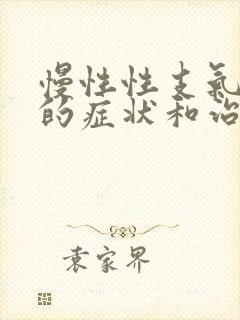 慢性性支氣
的症状和治
袁家界